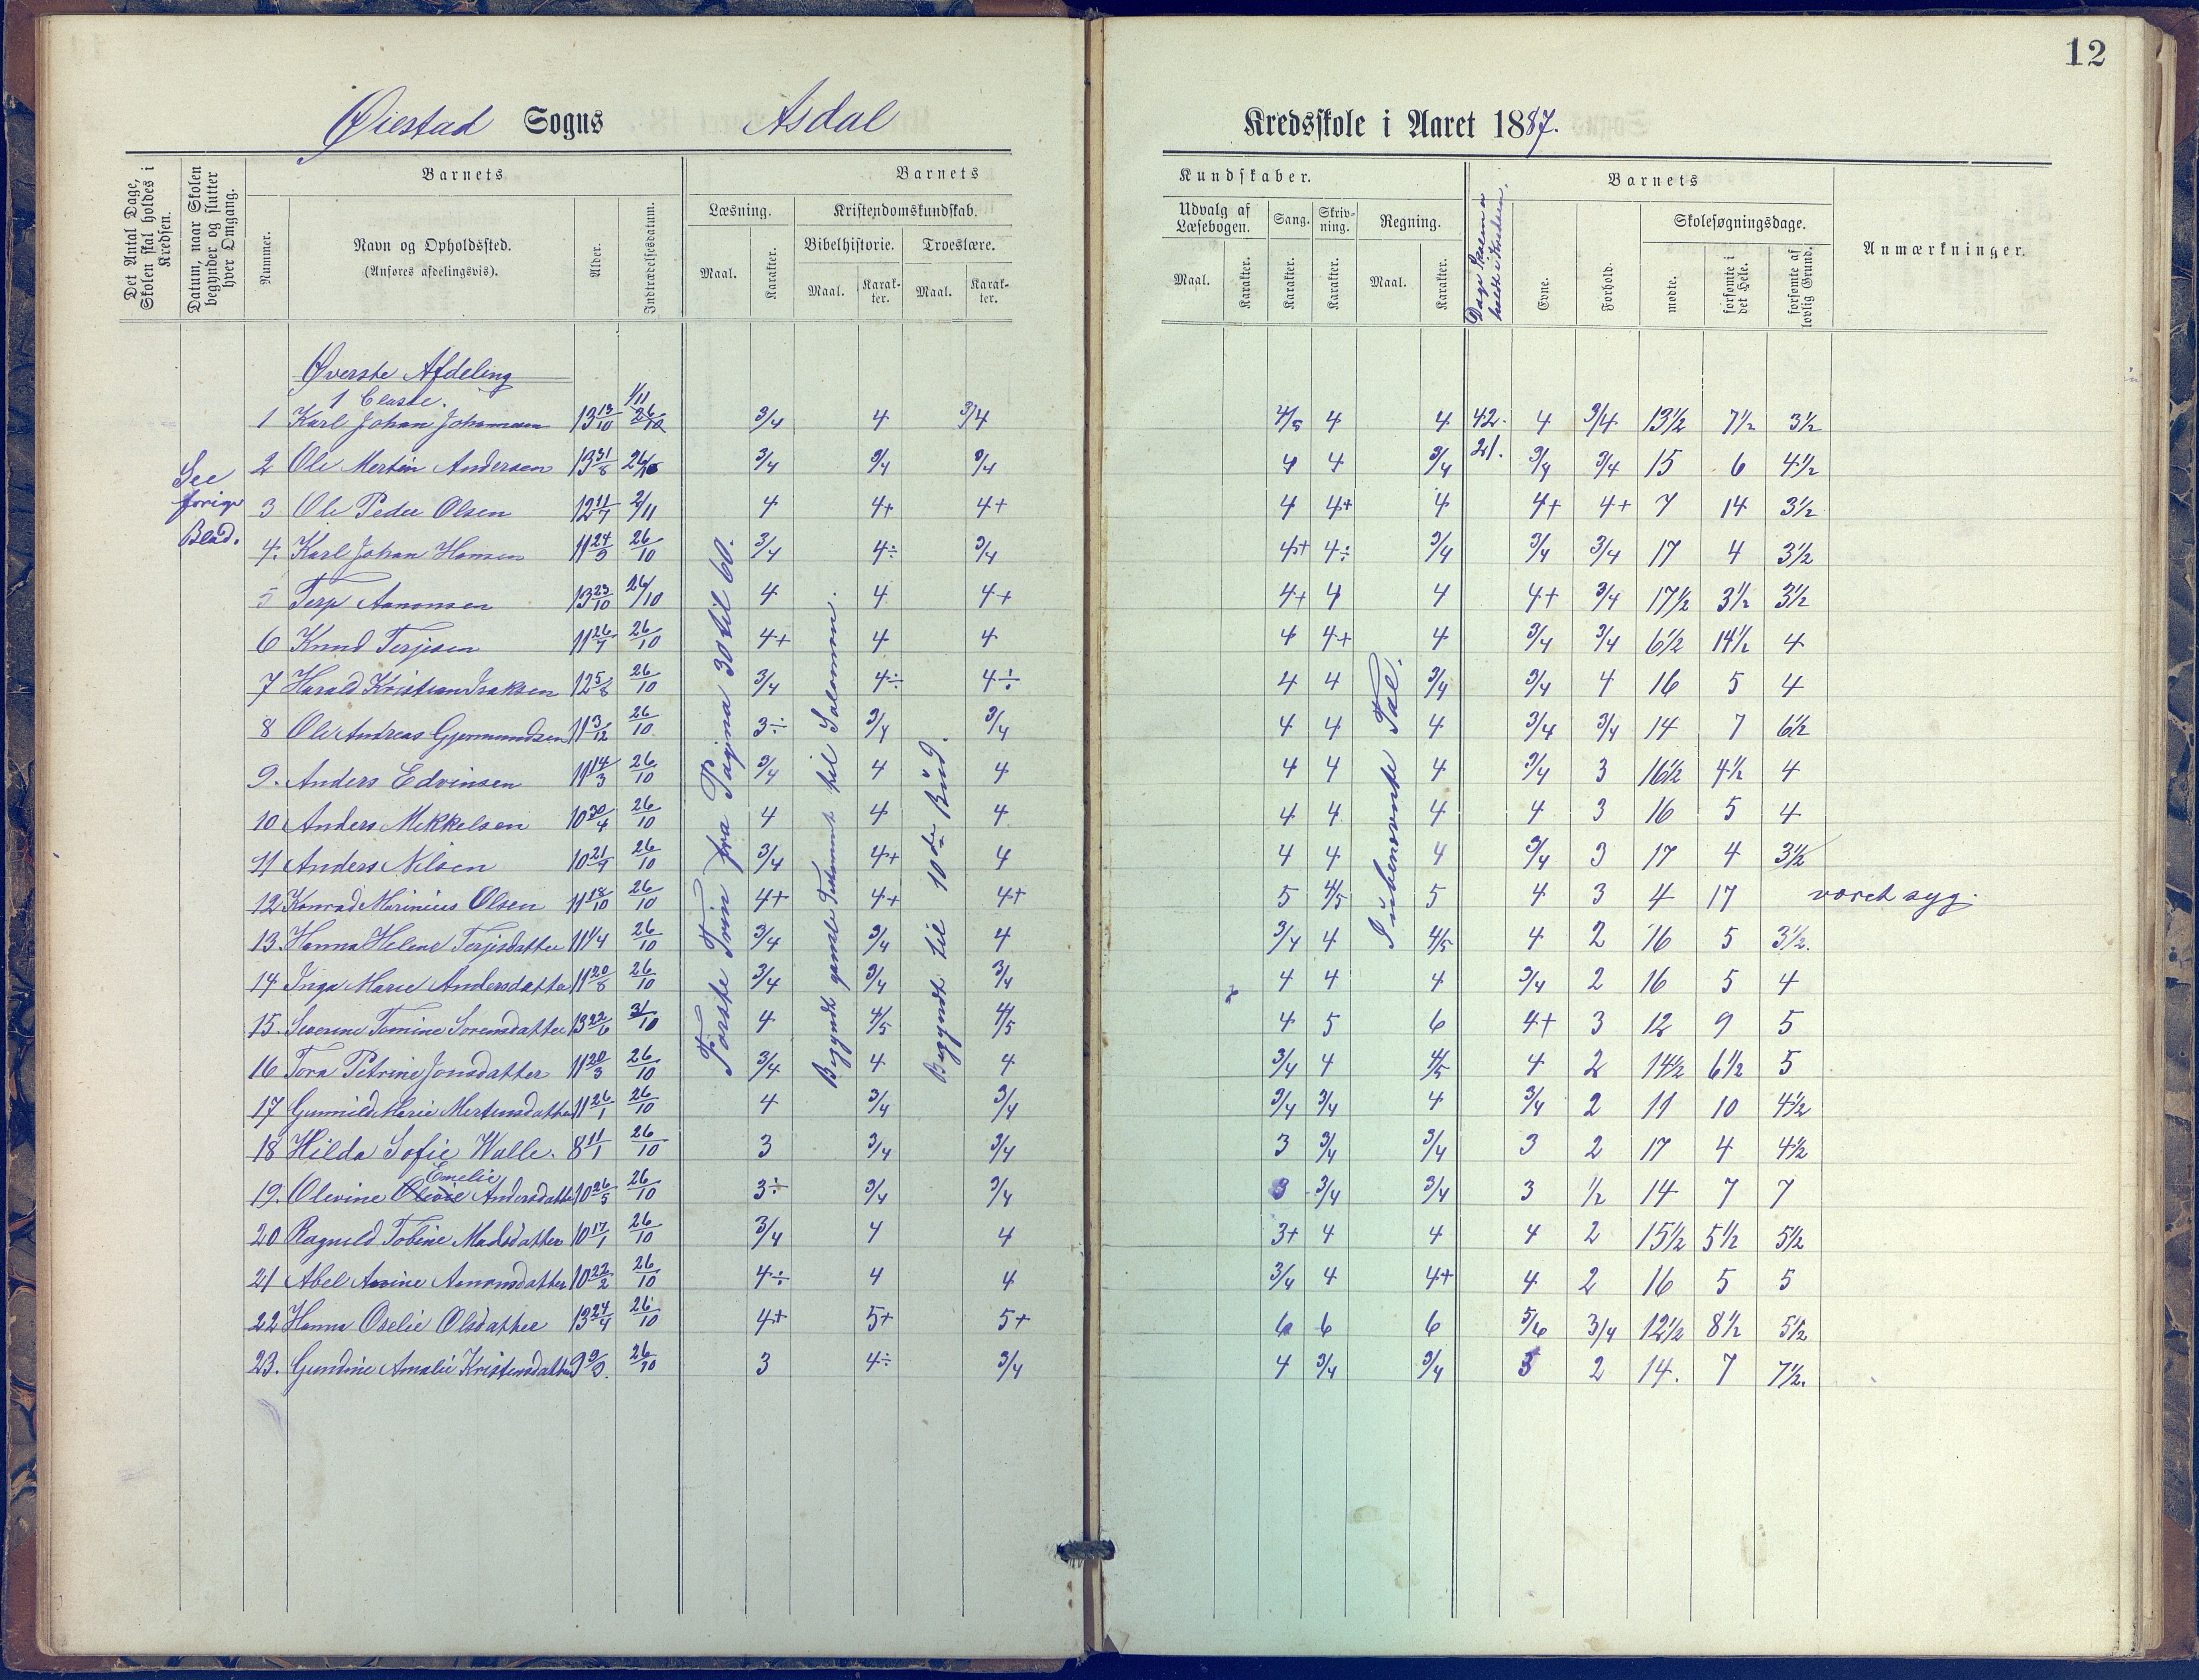 12
Øiestad Sogns Asdal Kredsskole i Aaret 1887.
Det Antal Dage, Skolen skal holdes i Kredsen.
Datum, naar Skolen begynder og slutter hver Omgang.
Barnets
Nummer.
Navn og Opholdssted.
(Anføres afdelingsvis).
Alder.
Indtrædelsesdatum.
Barnets
Læsning.
Maal.
Karakter.
Kristendomskundskab.
Bibelhistorie.
Maal.
Karak-
ter.
Troeslære.
Maal.
Karak-
ter.
Kundskaber.
Udvalg af
Læsebogen.
Maal.
Karakter.
Sang.
Karakter.
Skriv-
ning.
Karakter.
Regning.
Maal.
Karakter.
Dage Skolen er
holdt i Kredsen.
Barnets
Evne.
Forhold.
Skolesøgningsdage.
mødte.
forsømte i
det Hele.
forsømte af
lovlig Grund.
Anmærkninger.
See
forige
Blad.
Øverste Afdeling
1 Classe.
Første Trin fra Pagina 30 til 60.
Begyndt gamle Testament til Salomon.
Begyndt til 10de Bud.
I ubenævnte Tal.
1/11
1 Karl Johan Johannesen 13 13/10 26/10 3/4 4 3/4 4/5 4 4 42. 4 3/4 13½ 7½ 3½
2 Ole Martin Andersen 13 31/8 26/10 3/4 3/4 3/4 4 4 3/4 21. 3/4 3/4 15 6 4½
3 Ole Peder Olsen 12 11/7 2/11 4 4+ 4+ 4 4+ 4 4+ 4+ 7 14 3½
4. Karl Johan Hansen 11 24/9 26/10 3/4 4÷ 3/4 4+ 4÷ 3/4 3/4 3/4 17 4 3½
5 Terje Aanonsen 13 23/10 26/10 4 4 4+ 4+ 4 4 4+ 3/4 17½ 3½ 3½
6 Knud Terjesen 11 26/7 26/10 4+ 4 4 4 4+ 4 3/4 3/4 6½ 14½ 4
7 Harald Kristian Isaksen 12 5/8 26/10 3/4 4÷ 4÷ 4 4 3/4 3/4 4 16 5 4
8 Ole Andreas Gjermundsen 11 3/12 26/10 3÷ 3/4 3/4 4 4 4 3/4 3/4 14 7 6½
9. Anders Edvinsen 11 14/3 26/10 3/4 4 4 4 4 4 3/4 3 16½ 4½ 4
10 Anders Mikkelsen 10 30/4 26/10 4 4 4 4 4 4 4 3 16 5 4
11 Anders Nilsen 10 21/9 26/10 3/4 4+ 4 4 4 4 3/4 3 17 4 3½
12 Konrad Marinius Olsen 11 18/10 26/10 4+ 4+ 4+ 5 4/5 5 4 3 4 17 været syg.
13. Hanna Helene Terjesdatter 11 1/4 26/10 3/4 3/4 4 3/4 4 4/5 4 2 16 5 3½.
14 Inga Marie Andersdatter 11 20/8 26/10 3/4 3/4 3/4 4 4 4 3/4 2 16 5 4
15. Severine Tomine Sorensdatter 13 22/6 31/10 4 4/5 4/5 4 5 6 4+ 3 12 9 5
16 Tora Petrine Jonsdatter 11 20/3 26/10 3/4 4 4 3/4 4 4/5 4 2 14½ 6½ 5
17 Gunnild Marie Mertensdatter 11 26/1 26/10 4 3/4 3/4 3/4 3/4 4 3/4 2 11 10 4½
18 Hilda Sofie Walle. 8 11/1 26/10 3 3/4 3/4 3 3/4 3/4 3 2 17 4 4½
19. Olevine Emelie Andersdatter 10 26/5 26/10 3÷ 3/4 3/4 3 3/4 3/4 3 1/2 14 7 7
20 Ragnild Tobine Madsdatter 10 17/1 26/10 3/4 4 4 3+ 4 4 4 2 15½ 5½ 5½
21 Abel Anine Aanonsdatter 10 22/2 26/10 4÷ 4 4 3/4 4 4+ 4 2 16 5 5
22 Hanna Oselie Olsdatter 13 24/4 26/10 4+ 5+ 5+ 6 6 6 5/6 3/4 12½ 8½ 5½
23. Gundine Amalie Kristensdatter 9 9/9. 26/10 3 4÷ 3/4 4 3/4 3/4 3 2 14. 7 7½.